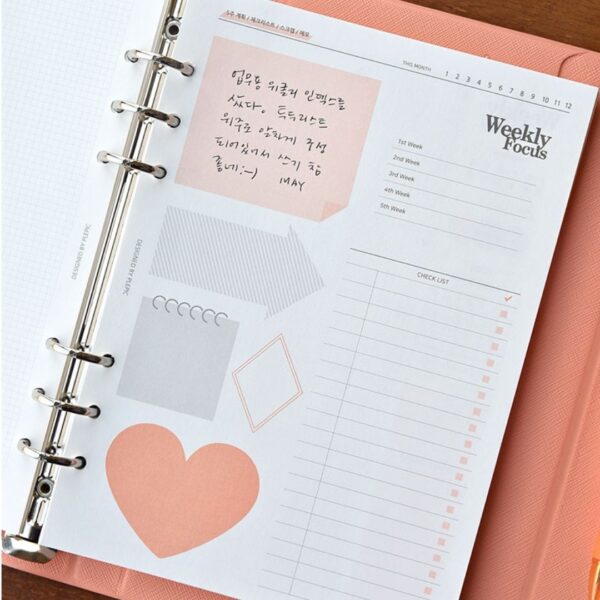 5주 계획 / 체크리스트 / 스크랩 / 메모
업무용 위클리 인덱스를
샀다. 투두리스트
위주로 알차게 구성
되어있어서 쓰기 참
좋네 :-) MAY
THIS MONTH 1 2 3 4 5 6 7 8 9 10 11 12
Weekly
Focus
1st Week
2nd Week
3rd Week
4th Week
5th Week
CHECK LIST
DESIGNED BY PLEPIC
DESIGNED BY PLEPIC